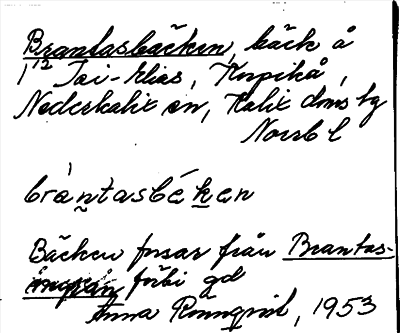 Brantasbäcken, bäck å
1¹² Jai-Elias, Korpikå,
Nederkalix sn, Kalix doms hg
Norrb l
bràntasbéken
Bäcken fusar från Brantas-
förbi gd
Anna Rönnqvist, 1953